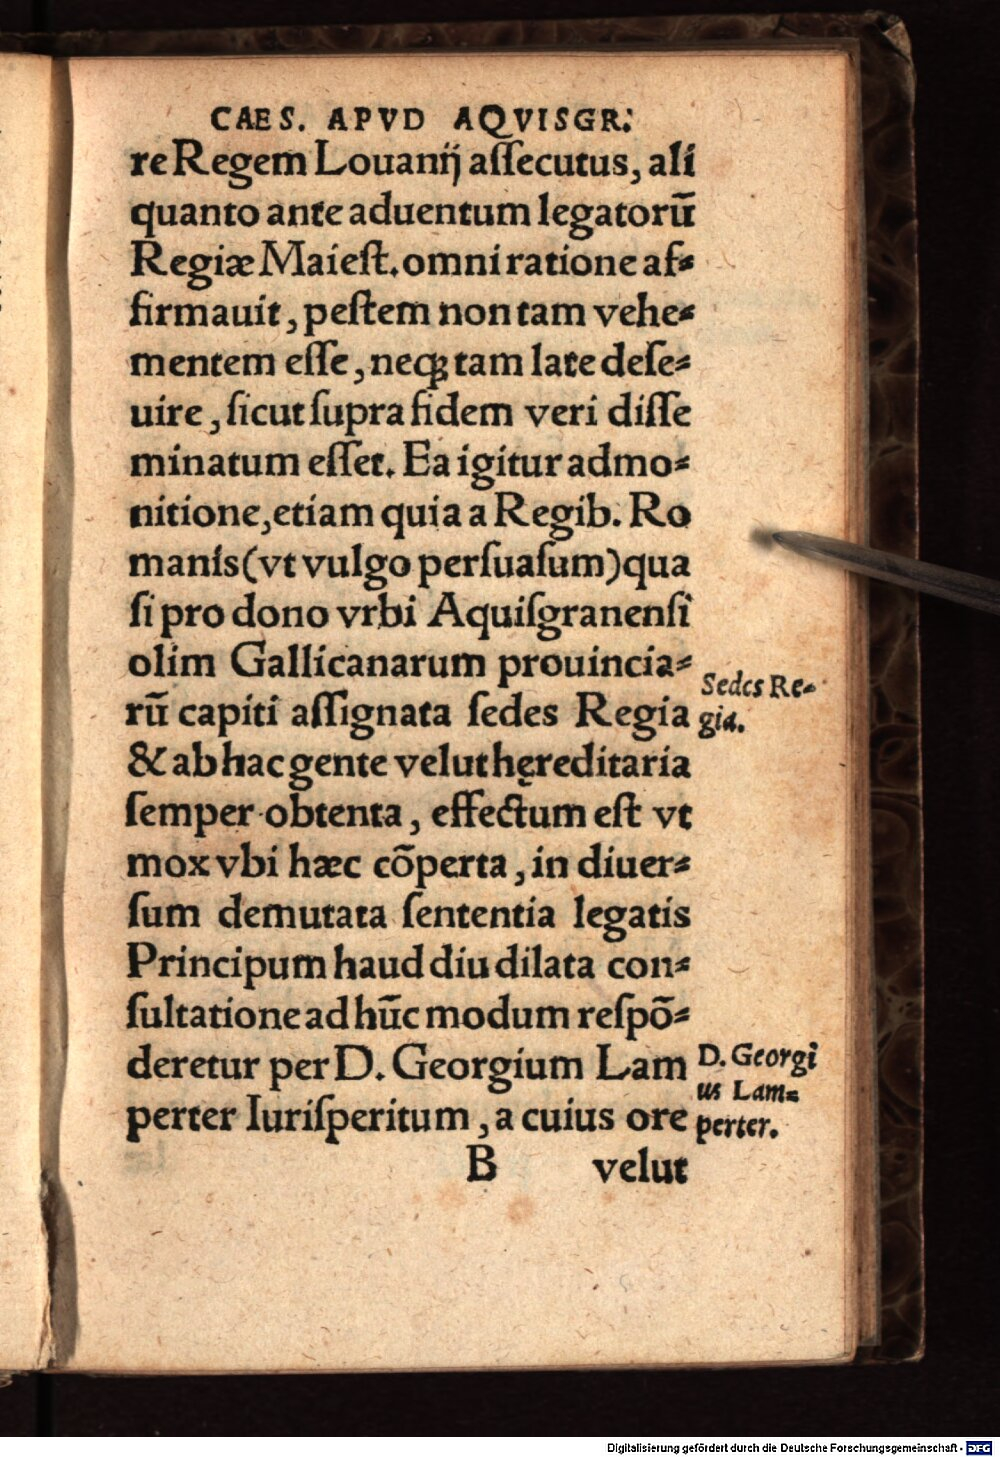 CAES. APVD AQVISGR.
re Regem Louanij aſſecutus, ali
quanto ante aduentum legatorū
Regiæ Maieſt. omni ratione af⸗
firmauit, peſtem non tam vehe⸗
mentem eſſe, neqꝫ tam late deſe⸗
uire, ſicut ſupra fidem veri diſſe
minatum eſſet. Ea igitur admo⸗
nitione, etiam quia a Regib. Ro
manis (vt vulgo perſuaſum) qua
ſi pro dono vrbi Aquiſgranenſi
olim Gallicanarum prouincia⸗
rū capiti aſſignata ſedes Regia
Sedes Re⸗
gia.
& ab hac gente velut hęreditaria
ſemper obtenta, effectum eſt vt
mox vbi hæc cōperta, in diuer⸗
ſum demutata ſententia legatis
Principum haud diu dilata con⸗
ſultatione ad hūc modum reſpō⸗
deretur per D. Georgium Lam
perter Iuriſperitum, a cuius ore
D. Georgi
us Lam⸗
perter.
B velut
Digitalisierung gefördert durch die Deutsche Forschungsgemeinschaft - DFG